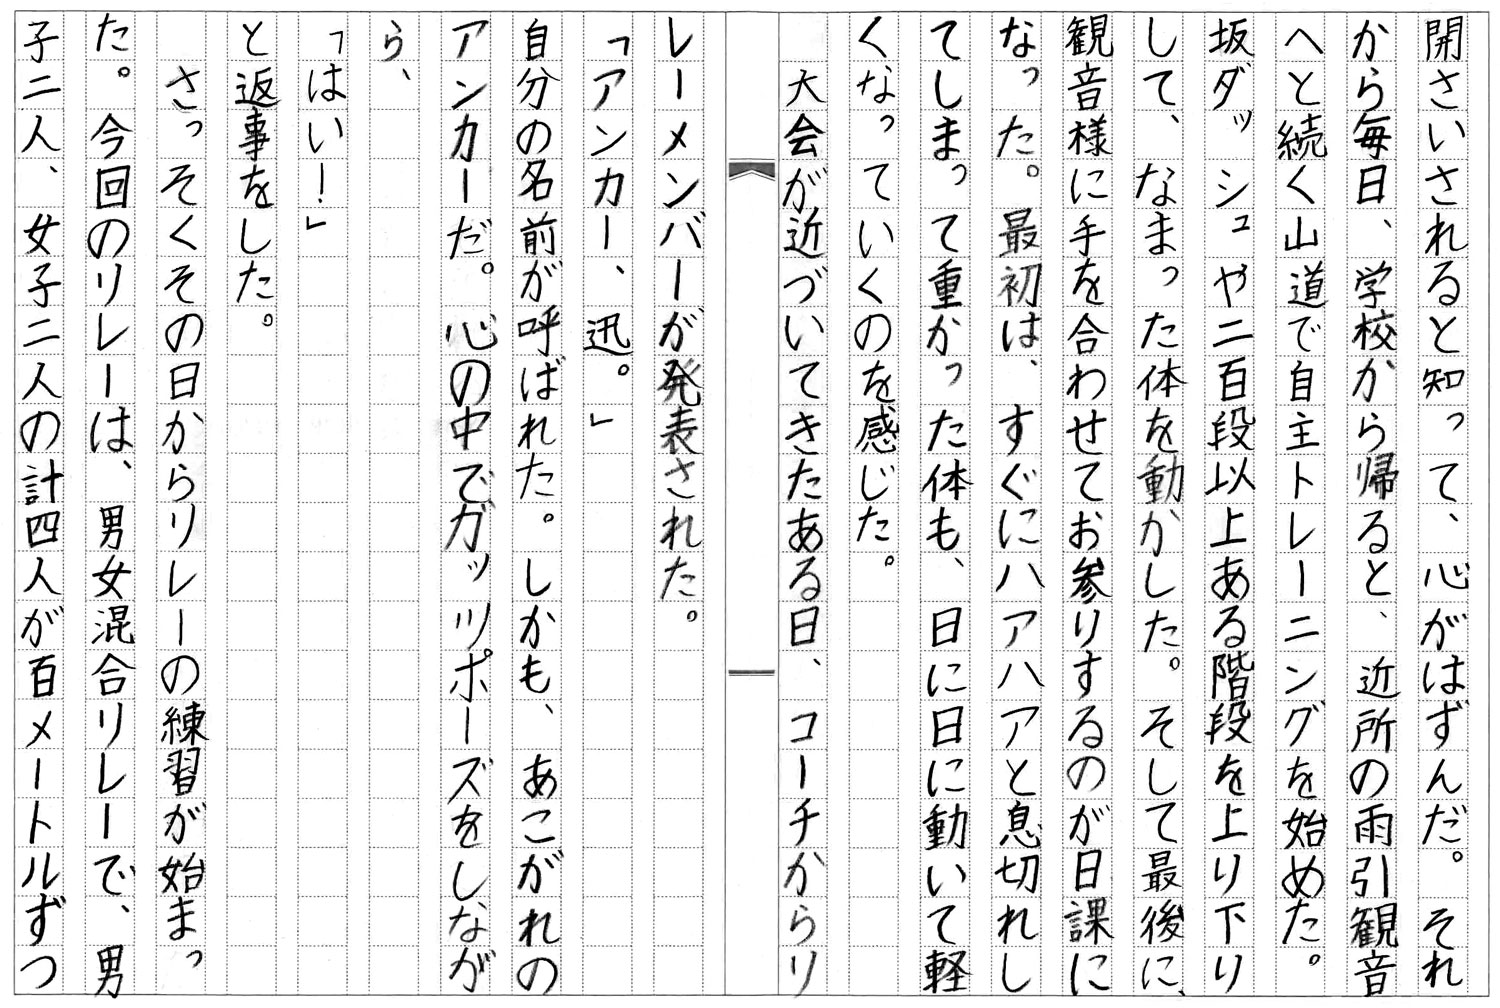 開さいされると知って、心がはずんだ。それ
から毎日、学校から帰ると、近所の雨引観音
へと続く山道で自主トレーニングを始めた。
坂ダッシュや二百段以上ある階段を上り下り
して、なまった体を動かした。そして最後に、
観音様に手を合わせてお参りするのが日課に
なった。最初は、すぐにハアハアと息切れし
てしまって重かった体も、日に日に動いて軽
くなっていくのを感じた。
大会が近づいてきたある日、コーチからリ
レーメンバーが発表された。
「アンカー、迅。」
自分の名前が呼ばれた。しかも、あこがれの
アンカーだ。心の中でガッツポーズをしなが
ら、
「はい！」
と返事をした。
さっそくその日からリレーの練習が始まっ
た。今回のリレーは、男女混合リレーで、男
子二人、女子二人の計四人が百メートルずつ